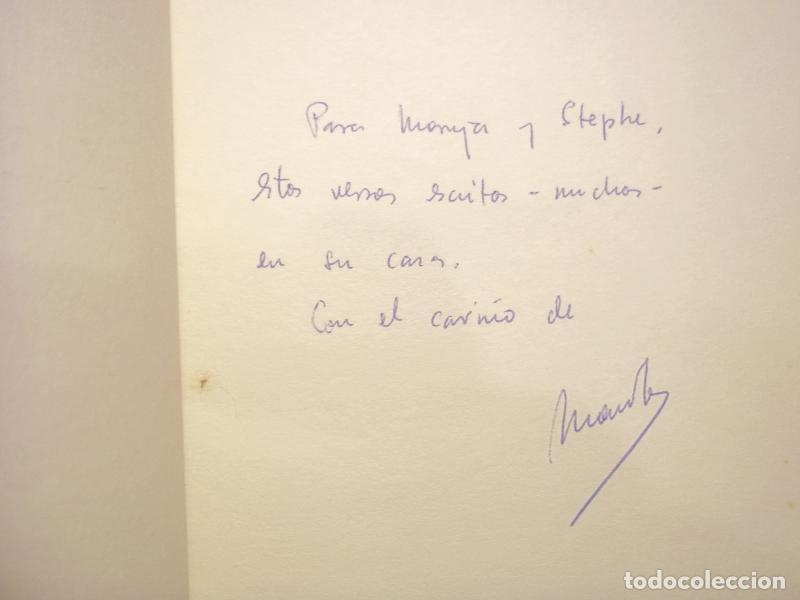 Para Maruja y Stephe,
Estos versos escritos - muchos -
en su casa.
Con el cariño de
todocoleccion
todocoleccion.net